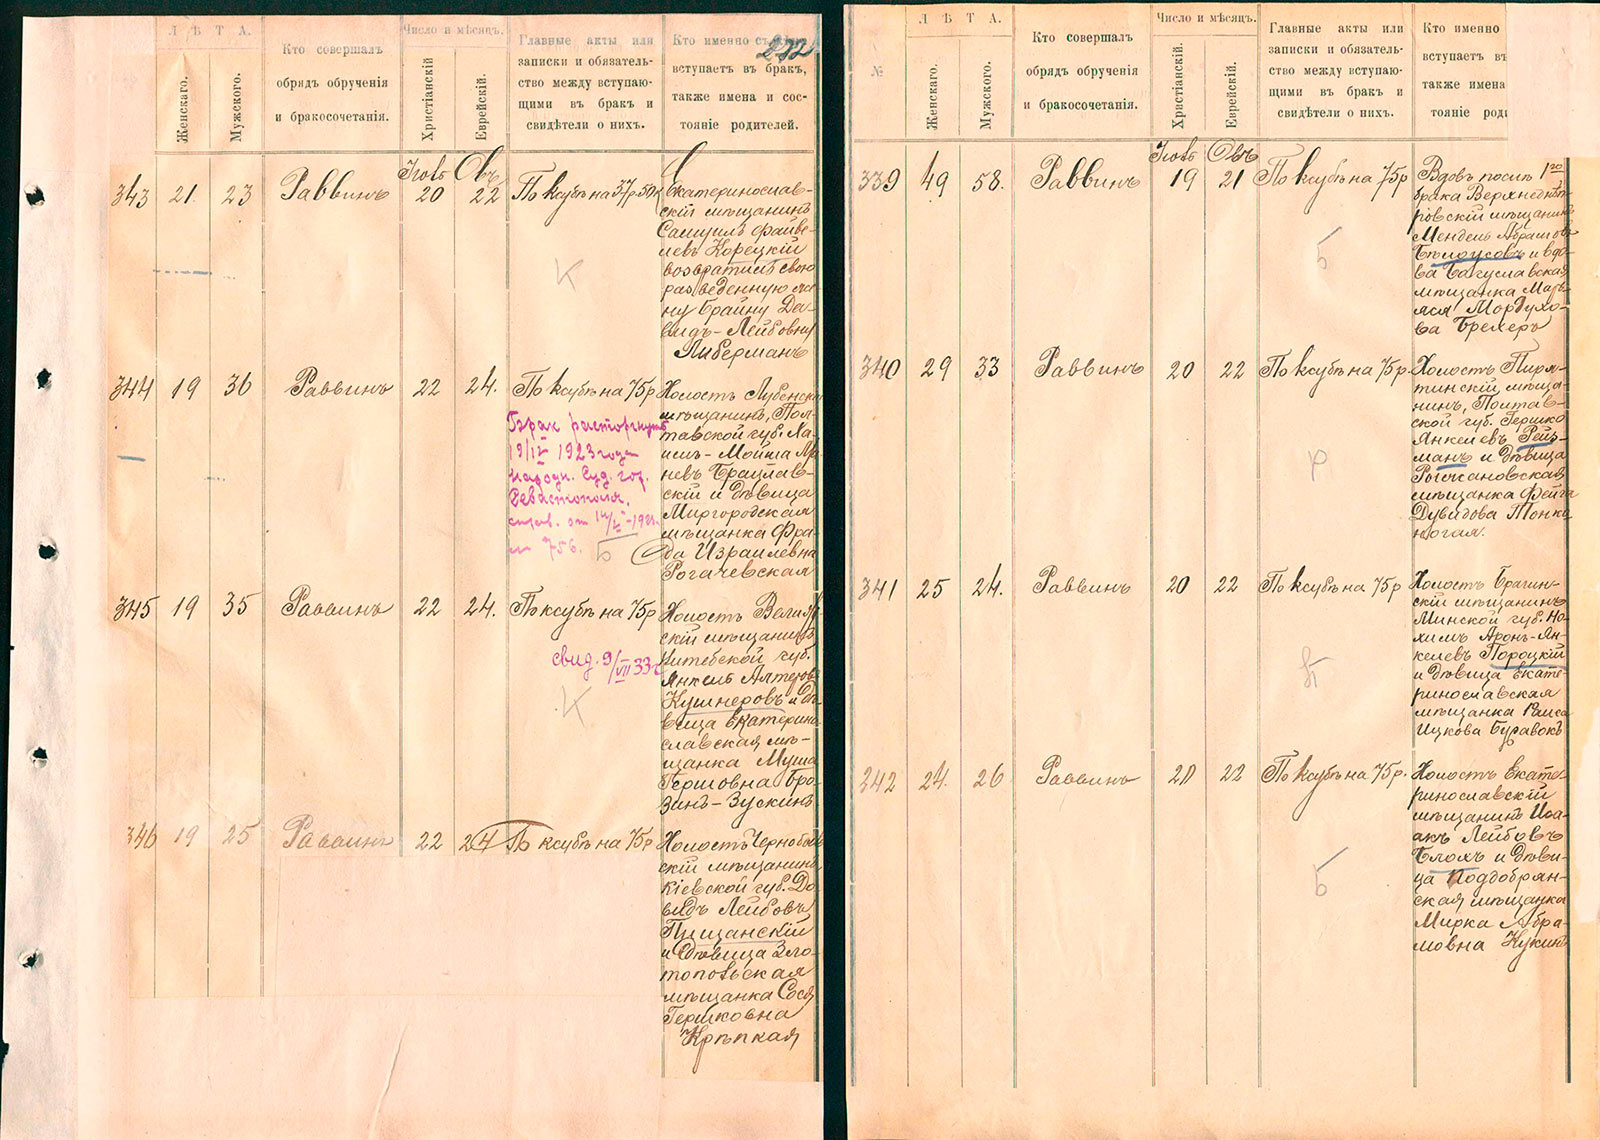 Л Ѣ Т А.
Женскаго.
Мужского.
Кто совершалъ
обрядъ обрученія
и бракосочетанія.
Число и мѣсяцъ.
Христіанскій
Еврейскій.
Главные акты или
записки и обязатель-
ство между вступаю-
щими въ бракъ и
свидѣтели о нихъ.
Кто именно съ
вступаетъ въ бракъ,
также имена и сос-
тояніе родителей.
Іюль Овъ
343 21. 23 Раввинъ 20 22 По ксубѣ на 37р 50к
Екатеринослав-
скій мѣщанинъ
Самуилъ Файве-
левъ Корецкій
возвратилъ свою
разведенную же-
ну Брайну Да-
видъ-Лейбовну
Либерманъ
344 19 36 Раввинъ 22 24. По ксубѣ на 75р
Бракъ расторгнутъ
19/IV 1923 года
народн. Суд. гор.
Севастополя.
№ 756. Б
Холостъ Лубенскій
мѣщанинъ, Пол-
тавской губ. Ха-
имъ-Мойша Ар
невъ Брацлав-
скій и дѣвица
Миргородская
мѣщанка Фра-
да Израилевна
Рогачевская
345 19 35 Раввинъ 22 24. По ксубѣ на 75р
свид. 9/VII 33 г
К
Холостъ
скій мѣщанинъ
Витебской губ.
Янкель Алтеровъ
Кушнеровъ и дѣ-
вица Екатерино
славская мѣ-
щанка Муша
Гершовна Бро
зинъ-Зускинъ
346 19 25 Раввинъ 22 24 По ксубѣ на 75р
Холостъ Чернобыль
скій мѣщанинъ
Кіевской губ. Да
видъ Лейбовъ
Пищанскій
и дѣвица Зло-
топольская
мѣщанка Сося
Гершковна
Крѣпкая
Л Ѣ Т А.
№
Женскаго.
Мужского.
Кто совершалъ
обрядъ обрученія
и бракосочетанія.
Число и мѣсяцъ.
Христіанскій.
Еврейскій.
Главные акты или
записки и обязатель-
ство между вступаю-
щими въ бракъ и
свидѣтели о нихъ.
Кто именно
вступаетъ въ
также имена
тояніе роди
Іюль Овъ
339 49 58. Раввинъ 19 21 По ксубѣ на 75р
Б
Вдовъ послѣ 1го
брака Верхнеднѣп-
ровскій мѣщанинъ
Мендель Абрамовъ
Бѣлоусовъ и вдо-
ва Богуславская
мѣщанка Марь-
яся Мордухо-
ва Брехеръ
340 29 33 Раввинъ 20 22 По ксубѣ на 75р.
Р
Холостъ Пиря-
тинскій мѣща-
нинъ, Полтав-
ской губ. Гершко
Янкелевъ Рейз-
манъ и дѣвица
Рогачовская
мѣщанка Фейга
Дувидова Тонко
ногая.
341 25 24. Раввинъ 20 22 По ксубѣ на 75р
П
Холостъ Брагин-
скій мѣщанинъ
Минской губ. Но-
химъ Аронъ-Ян-
келевъ Пороцкій
и дѣвица Екате-
ринославская
мѣщанка Раиса
Ицкова Буравокъ
342 24. 26 Раввинъ 20 22 По ксубѣ на 75р.
Б
Холостъ Екате-
ринославскій
мѣщанинъ Иса-
акъ Лейбовъ
Блохъ и дѣви-
ца Поддобрян-
ская мѣщанка
Мирка Абра-
мовна Кукинъ